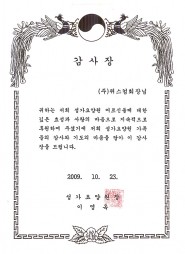 감 사 장
(주)위스컴회장님
귀하는 저희 성가요양원 어르신들에 대한
깊은 효성과 사랑의 마음으로 지속적으로
후원하여 주셨기에 저희 성가요양원 가족
들의 감사와 기도의 마음을 담아 이 감사
장을 드립니다.
2009. 10. 23.
성 가 요 양 원 장
이 영 숙